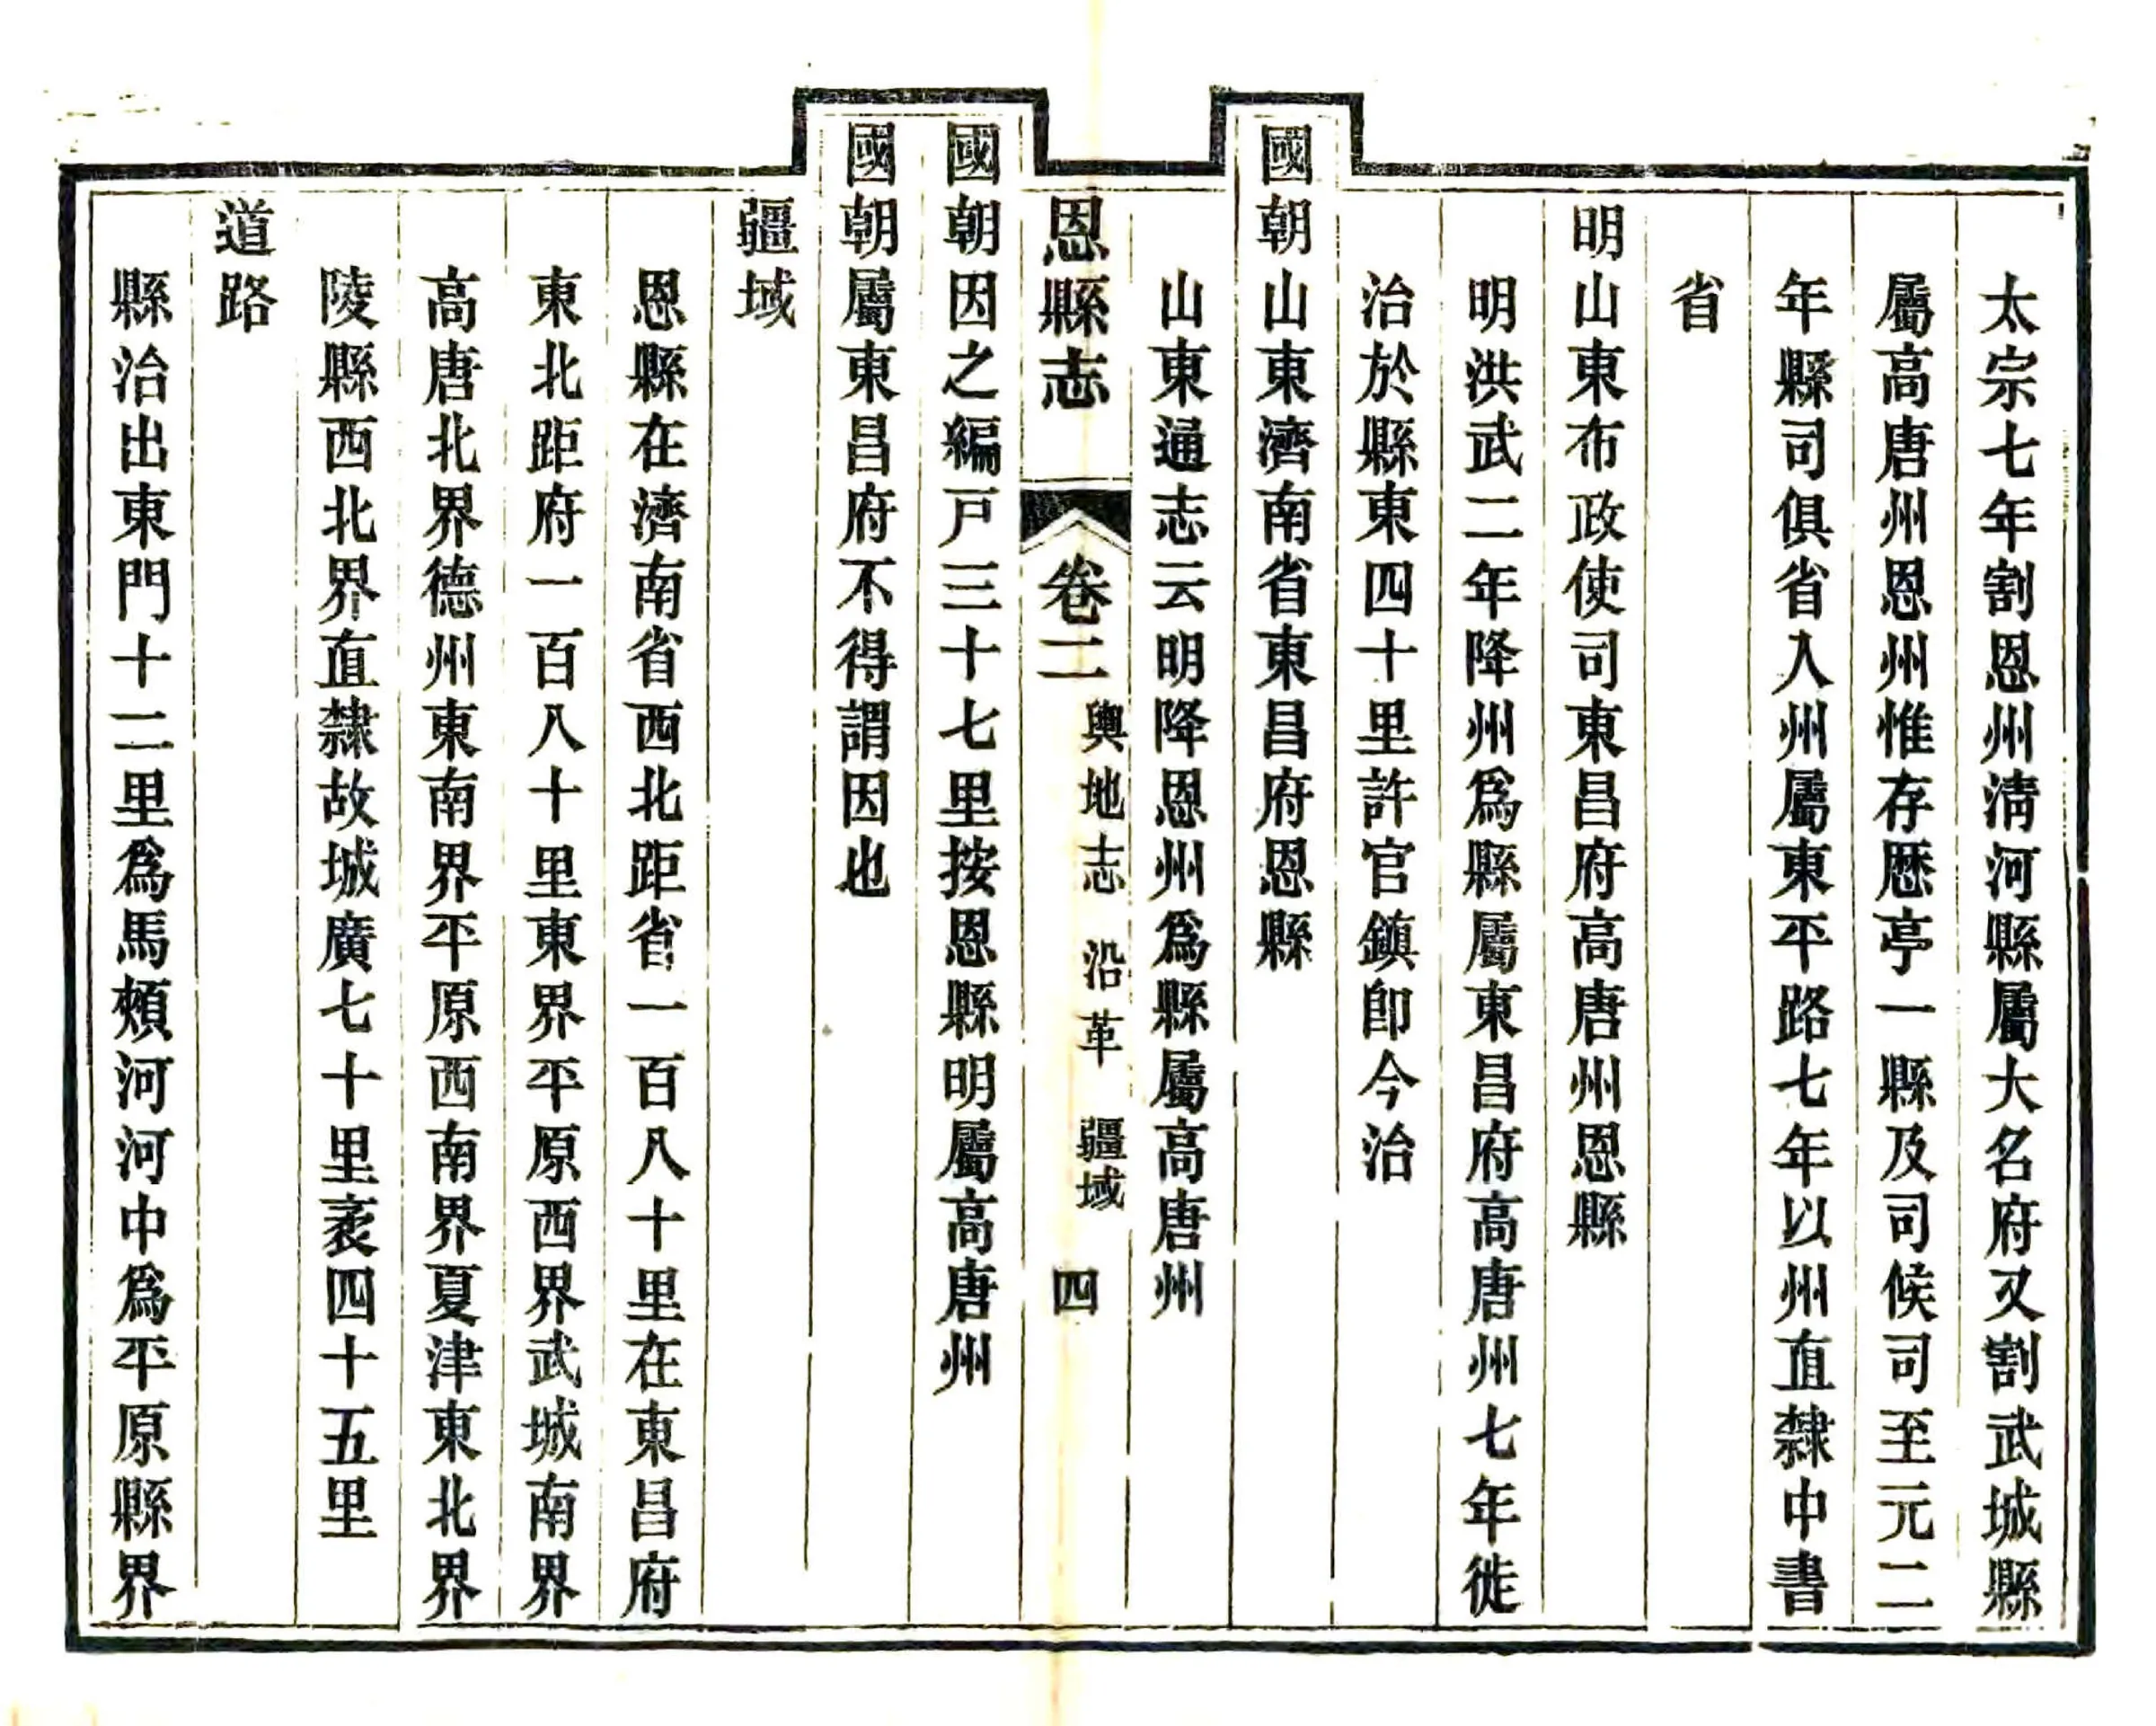 太宗七年割恩州清河縣屬大名府又割武城縣
屬高唐州恩州惟存歷亭一縣及司候司至元二
年縣司俱省入州屬東平路七年以州直隸中書
省
明山東布政使司東昌府高唐州恩縣
明洪武二年降州爲縣屬東昌府高唐州七年徙
治於縣東四十里許官鎮卽今治
國朝山東濟南省東昌府恩縣
山東通志云明降恩州爲縣屬高唐州
恩縣志 卷二 輿地志 沿革 疆域 四
國朝因之編戸三十七里按恩縣明屬高唐州
國朝屬東昌府不得謂因也
疆域
恩縣在濟南省西北距省一百八十里在東昌府
東北距府一百八十里東界平原西界武城南界
高唐北界德州東南界平原西南界夏津東北界
陵縣西北界直隸故城廣七十里袤四十五里
道路
縣治出東門十二里爲馬頰河河中爲平原縣界